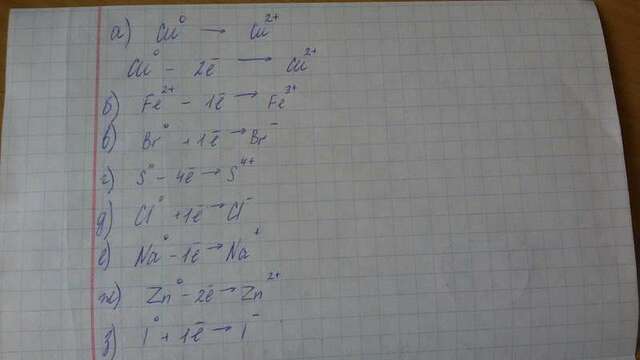 а) Cu⁰ → Cu²⁺
Cu⁰ - 2ē → Cu²⁺
б) Fe²⁺ - 1ē → Fe³⁺
в) Br⁰ + 1ē → Br⁻
г) S⁰ - 4ē → S⁴⁺
д) Cl⁰ + 1ē → Cl⁻
е) Na⁰ - 1ē → Na⁺
ж) Zn⁰ - 2ē → Zn²⁺
з) I⁰ + 1ē → I⁻